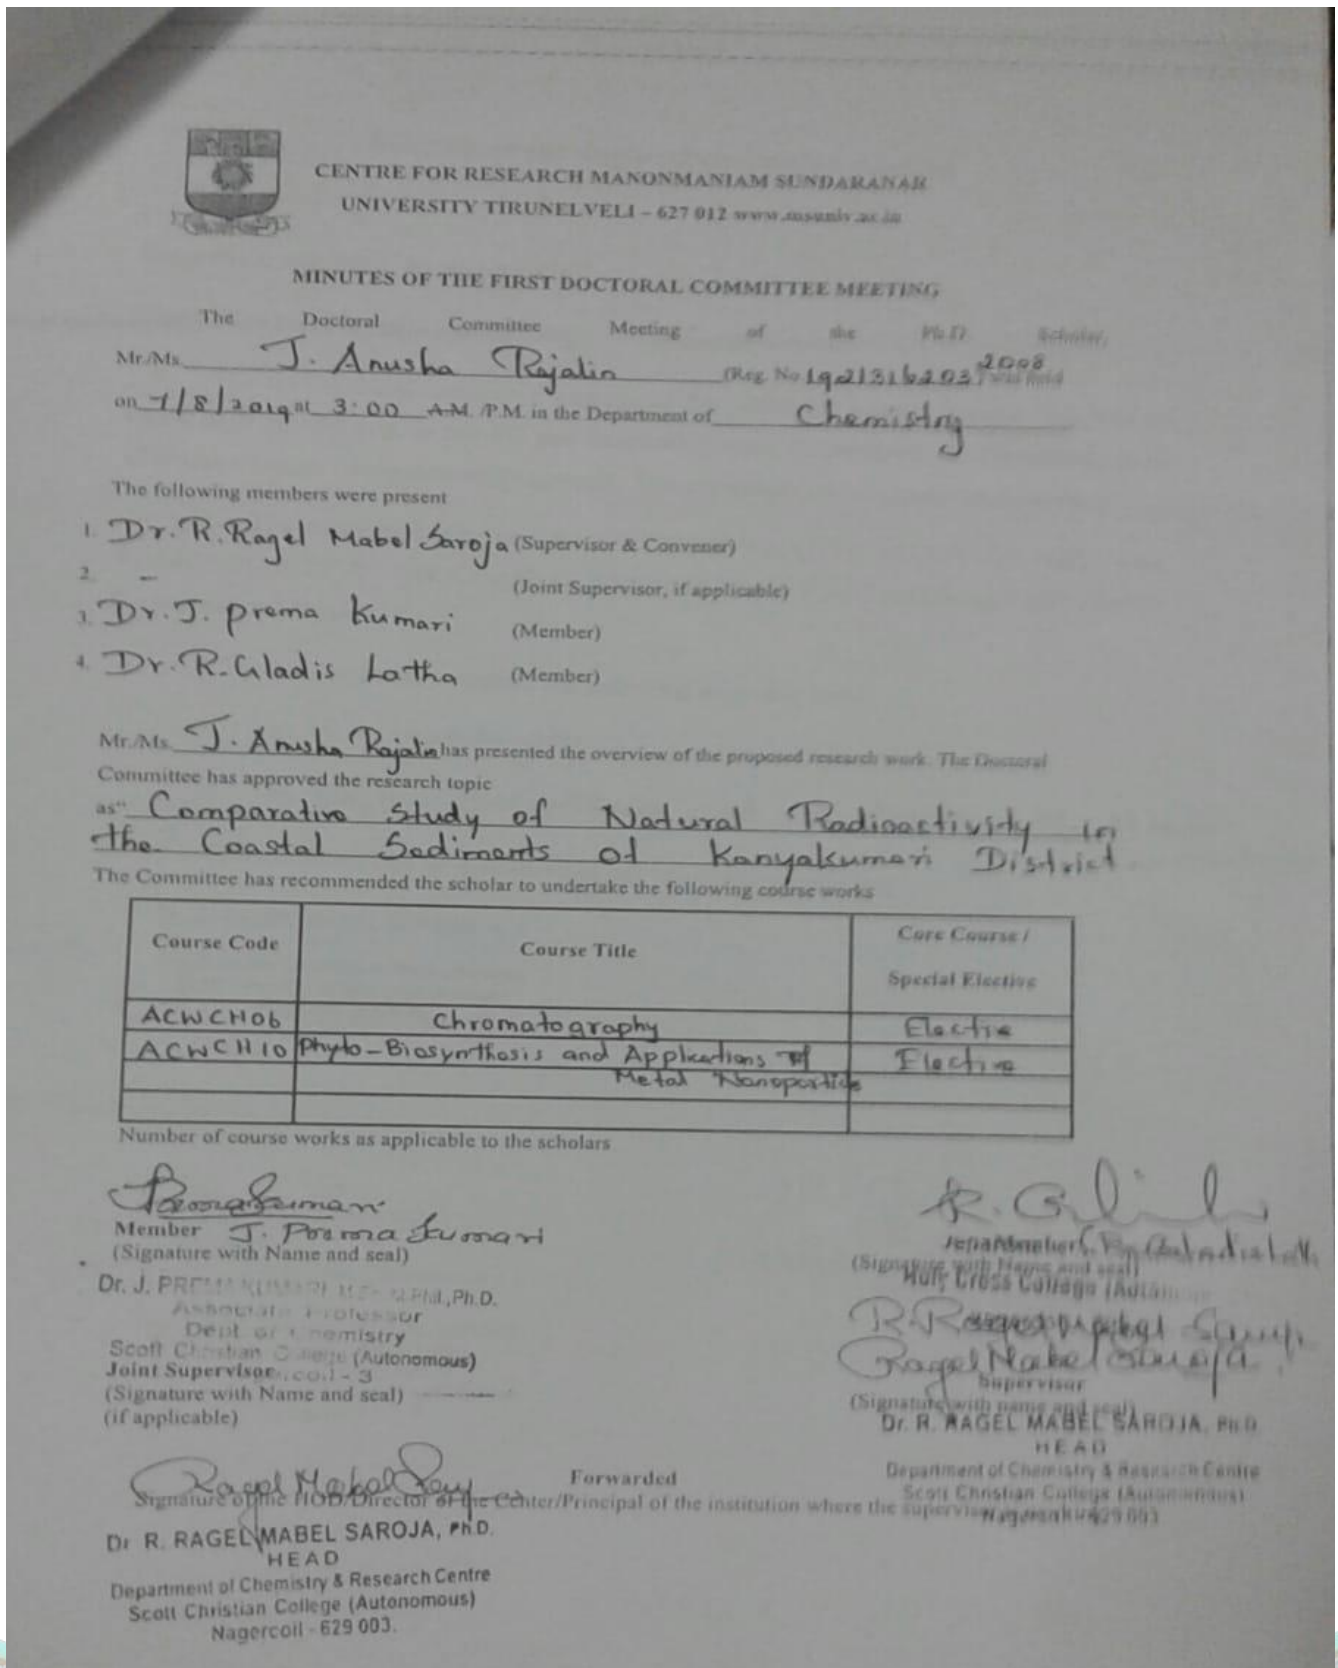 CENTRE FOR RESEARCH MANONMANIAM SUNDARANAR
UNIVERSITY TIRUNELVELI – 627 012 www.msuniv.ac.in
MINUTES OF THE FIRST DOCTORAL COMMITTEE MEETING
The Doctoral Committee Meeting of the Ph.D Scholar,
Mr./Ms. J. Anusha Rajalin (Reg. No 19213162032008
on 7/8/2019 at 3:00 A.M. /P.M. in the Department of Chemistry
The following members were present
1. Dr. R. Ragel Mabel Saroja (Supervisor & Convener)
2. – (Joint Supervisor, if applicable)
3. Dr. J. Prema Kumari (Member)
4. Dr. R. Gladis Latha (Member)
Mr./Ms. J. Anusha Rajalin has presented the overview of the proposed research work. The Doctoral
Committee has approved the research topic
as" Comparative Study of Natural Radioactivity in
the Coastal Sediments of Kanyakumari District
The Committee has recommended the scholar to undertake the following course works
Course Code Course Title Core Course / Special Elective
ACWCH06 Chromatography Elective
ACWCH10 Phyto-Biosynthesis and Applications of Elective
Metal Nanoparticle
Number of course works as applicable to the scholars
Member J. Prema Kumari
(Signature with Name and seal)
Dr. J. PREMA KUMARI M.Sc., M.Phil., Ph.D.
Associate Professor
Dept of Chemistry
Scott Christian College (Autonomous)
Joint Supervisor
(Signature with Name and seal)
(if applicable)
R. Gladis
(Signature with Name and seal)
Holy Cross College (Auto
R. Ragel Mabel Saroja
Ragel Mabel Saroja
Supervisor
(Signature with name and seal)
Dr. R. RAGEL MABEL SAROJA, Ph.D.
HEAD
Department of Chemistry & Research Centre
Scott Christian College (Autonomous)
Nagercoil - 629 003
Forwarded
Signature of the HOD/Director of the Center/Principal of the institution where the supervisor
Dr R. RAGEL MABEL SAROJA, Ph.D.
HEAD
Department of Chemistry & Research Centre
Scott Christian College (Autonomous)
Nagercoil - 629 003.